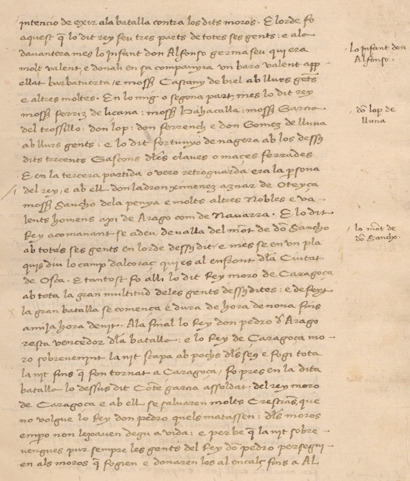 intencio de exir ala batalla contra los dits moros. E lorde fo
aquest q̄ lo dit rey feu tres parts de totes ses gents. e ala
davantera mes lo Infant don Alfonso germa seu qui era
molt valent e donali en sa companyia un baro valent app
ellat barbatuerta e mossē Castany de biel ab llurs gēts
e altres moltes. En lo mig o segona part mes lo dit rey
mossē ferriz de licana. mossē bahacalla. mossē
del trossillo. don lop. don ferrench e don Gomez de lluna
ab llurs gents. e lo dit fortunyo de nagera ab los dessus
dits trecents Gascons dls claves o maces ferrades
E en la tercera partida o vero retroguarda era la psona
del rey. e ab ell don ladron ximenez aznar de Oteyça
mossē Sancho dela penya e molts altres Nobles e va
lents homens axi de Arago com de Navarra. E lo dit
Rey acomanant se a deu. devalla del mōt de dō Sancho
ab totes ses gents en lorde dessus dit. e mes se en un pla
quis diu lo camp dalcoraç qui es al enfront dla Ciutat
de Osca. E tantost fo alli lo dit Rey moro de Caragoca
ab tota la gran multitud deles gents dessus dites. e
la gran batalla se comença e dura de hora de nona fins
a mija hora de nit. Ala final lo Rey don pedro d Arago
resta vencedor dla batalla. e lo Rey de Caragoca mo
ro sobrevenint la nit scapa ab pochs dls seus e fogi tota
la nit fins q̄ fon tornat a Caragoca. fo pres en la dita
batalla lo dessus dit Cōte garcia assoldat del rey moro
de Caragoca e ab ell se salvaren molts Crestians que
no volgue lo Rey don pedro quels matassen. dls moros
empo non lexaven degu a vida. e per be q̄ la nit sobre
vengues pur sempre les gents del Rey dō pedro persegui
en als moros q̄ fogien e donaren los al encalç fins a Al
lo Infant don
Alfonso.
dō lop de
lluna
lo mōt de
dō Sancho.